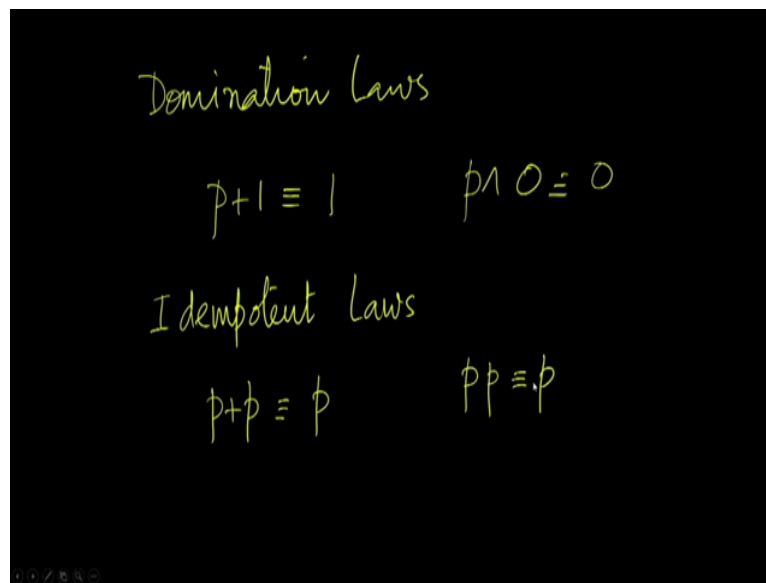 Domination Laws
p+1 ≡ 1 p∧0 ≡ 0
Idempotent Laws
p+p ≡ p pp ≡ p